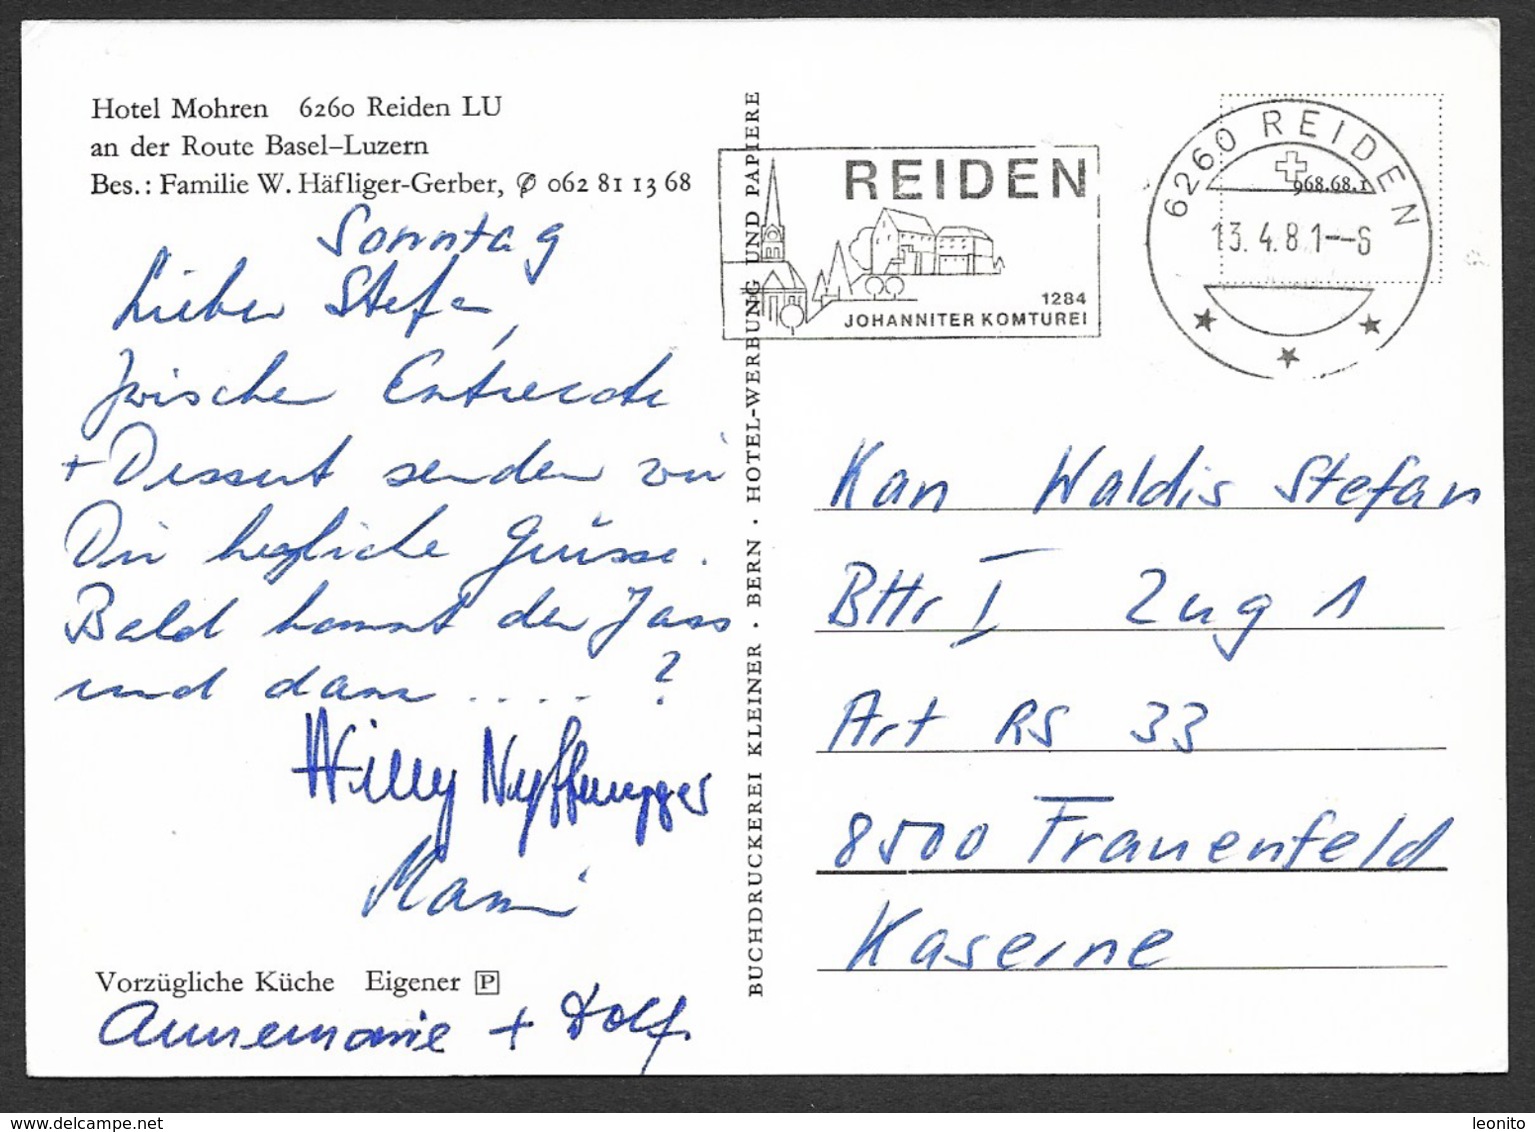 Hotel Mohren 6260 Reiden LU
an der Route Basel–Luzern
Bes.: Familie W. Häfliger-Gerber, ✆ 062 81 13 68
Sonntag
Lieber Stefan,
Zwischen Entrecote
+ Dessert senden wir
Dir herzliche Grüsse.
Bald kommt der Jass
und dann .... ?
Willy
Mami
Vorzügliche Küche Eigener P
Annemarie + Dolf.
BUCHDRUCKEREI KLEINER · BERN · HOTEL-WERBUNG UND PAPIERE
REIDEN
1284
JOHANNITER KOMTUREI
6260 REIDEN
968.68.1
13.4.81--6
Kan Waldis Stefan
BHr I Zug 1
Art RS 33
8500 Frauenfeld
Kaserne
www.delcampe.net
leonito